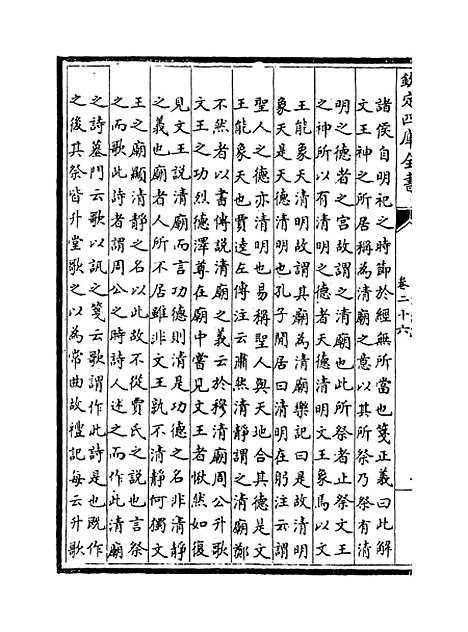 欽定四庫全書
卷二十六
諸侯自明祀之時節於經無所當也箋正義曰此解
文王神之所居稱為清廟之意以其所祭乃祭有清
明之德者之宮故謂之清廟也此所祭者止祭文王
之神所以有清明之德者天德清明文王象焉以文
王能象天清明故謂其廟為清廟樂記曰是故清明
象天是天德清明也孔子閒居曰清明在躬注云謂
聖人之德亦清明也易稱聖人與天地合其德是文
王能象天也賈逵左傳注云肅然清靜謂之清廟鄭
不然者以書傳說清廟之義云於穆清廟周公升歌
文王之功烈德澤尊在廟中嘗見文王者愀然如復
見文王說清廟而言功德則清是功德之名非清靜
之義也廟者人所不居雖非文王孰不清靜何獨文
王之廟顯清靜之名以此故不從賈氏之說也言祭
之而歌此詩者謂周公之時詩人述之而作此清廟
之詩墓門云歌以訊之箋云歌謂作此詩是也既作
之後其祭皆升堂歌之以為常曲故禮記每云升歌